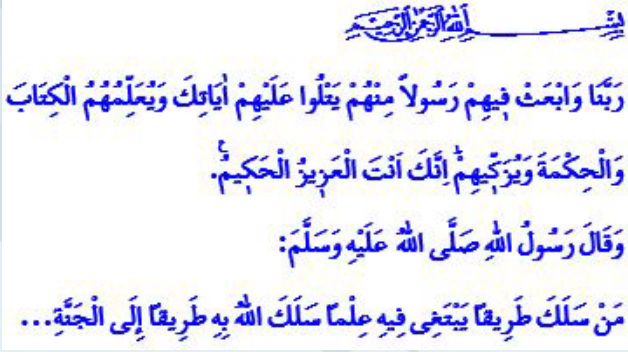 بِسْمِ اللهِ الرَّحْمٰنِ الرَّحِيمِ
رَبَّنَا وَابْعَثْ فِيهِمْ رَسُولاً مِنْهُمْ يَتْلُوا عَلَيْهِمْ اٰيَاتِكَ وَيُعَلِّمُهُمُ الْكِتَابَ
وَالْحِكْمَةَ وَيُزَكِّيهِمْۜ اِنَّكَ اَنْتَ الْعَزِيزُ الْحَكِيمُ۟.
وَقَالَ رَسُولُ اللهِ صَلَّى اللهُ عَلَيْهِ وَسَلَّمَ:
مَنْ سَلَكَ طَرِيقًا يَبْتَغِى فِيهِ عِلْمًا سَلَكَ اللهُ بِهِ طَرِيقًا إِلَى الْجَنَّةِ...